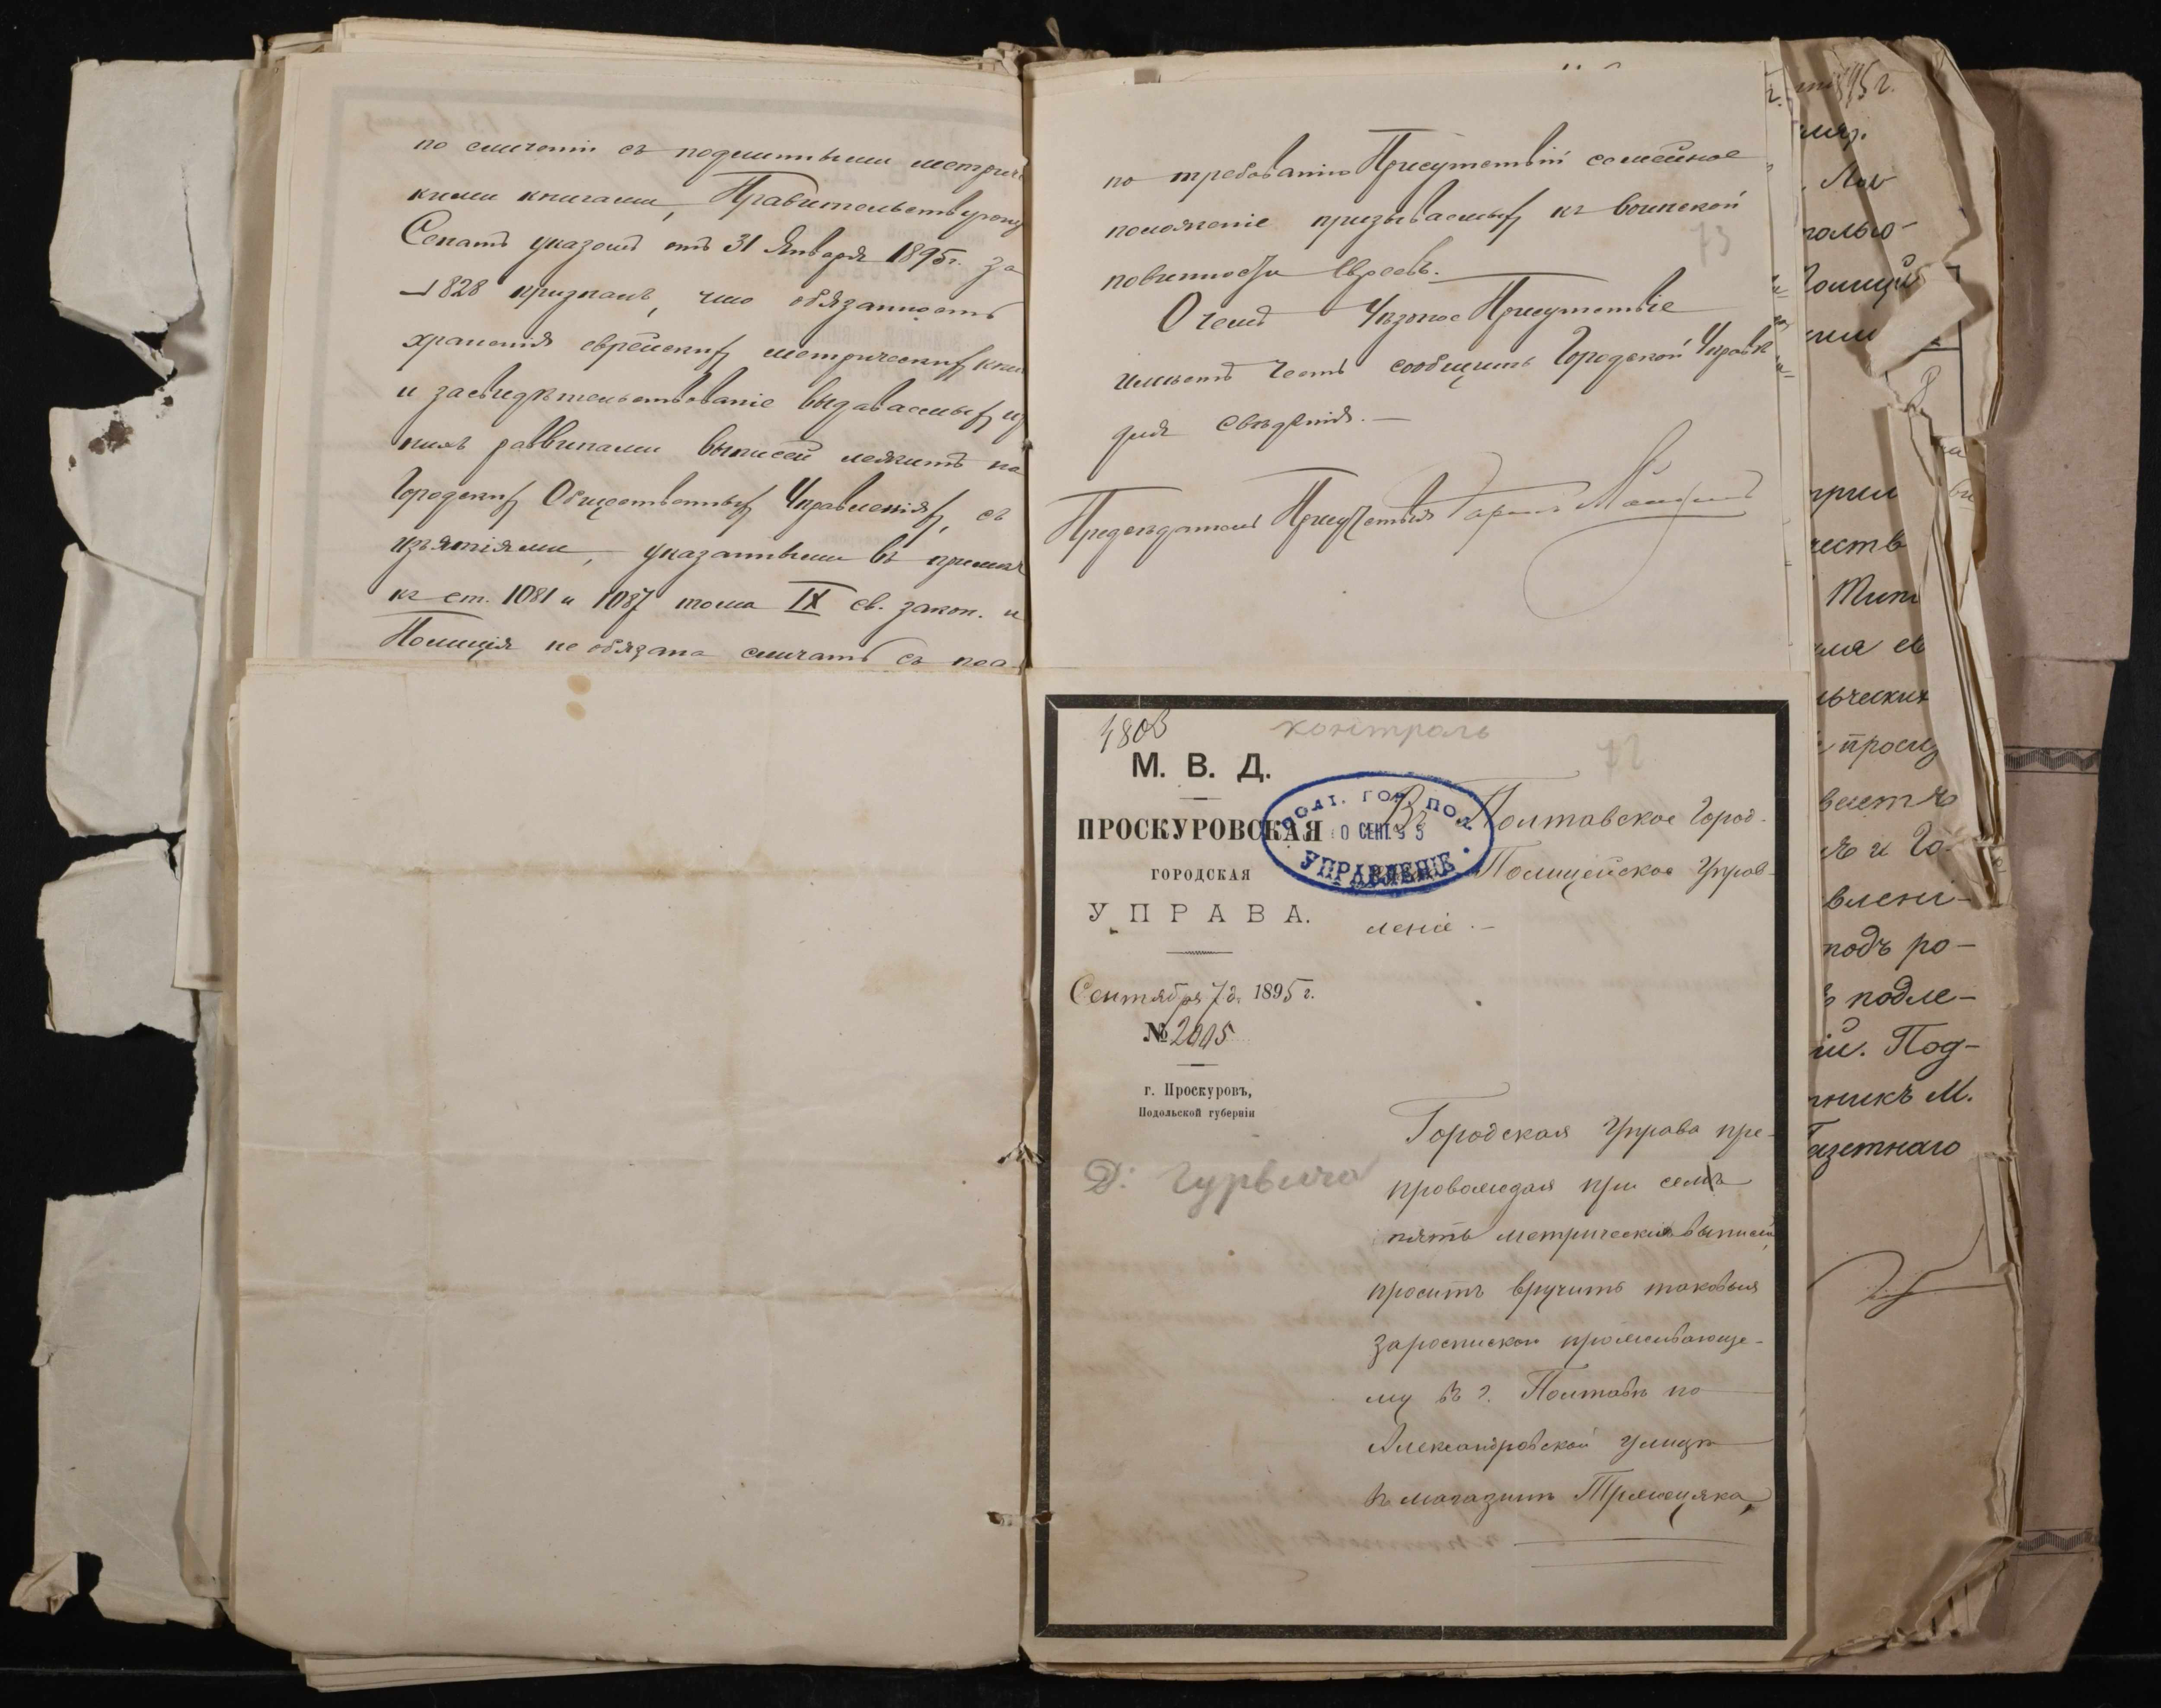 по сличеніи съ подлинными метриче
кими книгами, Правительствующ
Сенатъ указомъ отъ 31 Января 1895 г. за
1828 призналъ, что обязанность
храненія еврейскихъ метрическихъ кни
и засвидѣтельствованіе выдаваемыхъ из
нихъ раввинами выписей лежитъ на
Городскихъ Общественныхъ Управленіяхъ, съ
изъятіями, указанными въ примѣч
къ ст. 1081 и 1087 тома IX св. закон. и
Полиція не обязана сличать съ под
по требованію Присутствій семейное
положеніе призываемыхъ къ воинской
73
повинности евреевъ.
О чемъ Уѣздное Присутствіе
имѣетъ честь сообщить Городской Управѣ
для свѣдѣнія. —
Предсѣдатель Присутствія
4803
контроль
72
М. В. Д.
ПРОСКУРОВСКАЯ
ГОРОДСКАЯ
УПРАВА.
Сентября 7 д. 1895 г.
№ 2005
г. Проскуровъ,
Подольской губерніи
ГОР. ПОЛ.
0 СЕНТ. 95
УПРАВЛЕНІЕ
Въ Полтавское Город.
Полицейское Управ-
леніе. —
Городская Управа пре-
провождая при семъ
пять метрическихъ выписей,
проситъ вручить таковыя
за роспиской проживающе-
му въ г. Полтавѣ по
Александровской улицѣ
въ магазинѣ
Д. Гурвича
95 г.
Лав
только-
Полиці
честв
Тип
ля св
ьческих
просиз
ваетъ
я и Го-
влені-
подъ ро-
подле-
ій. Под-
никъ М.
Газетнаго